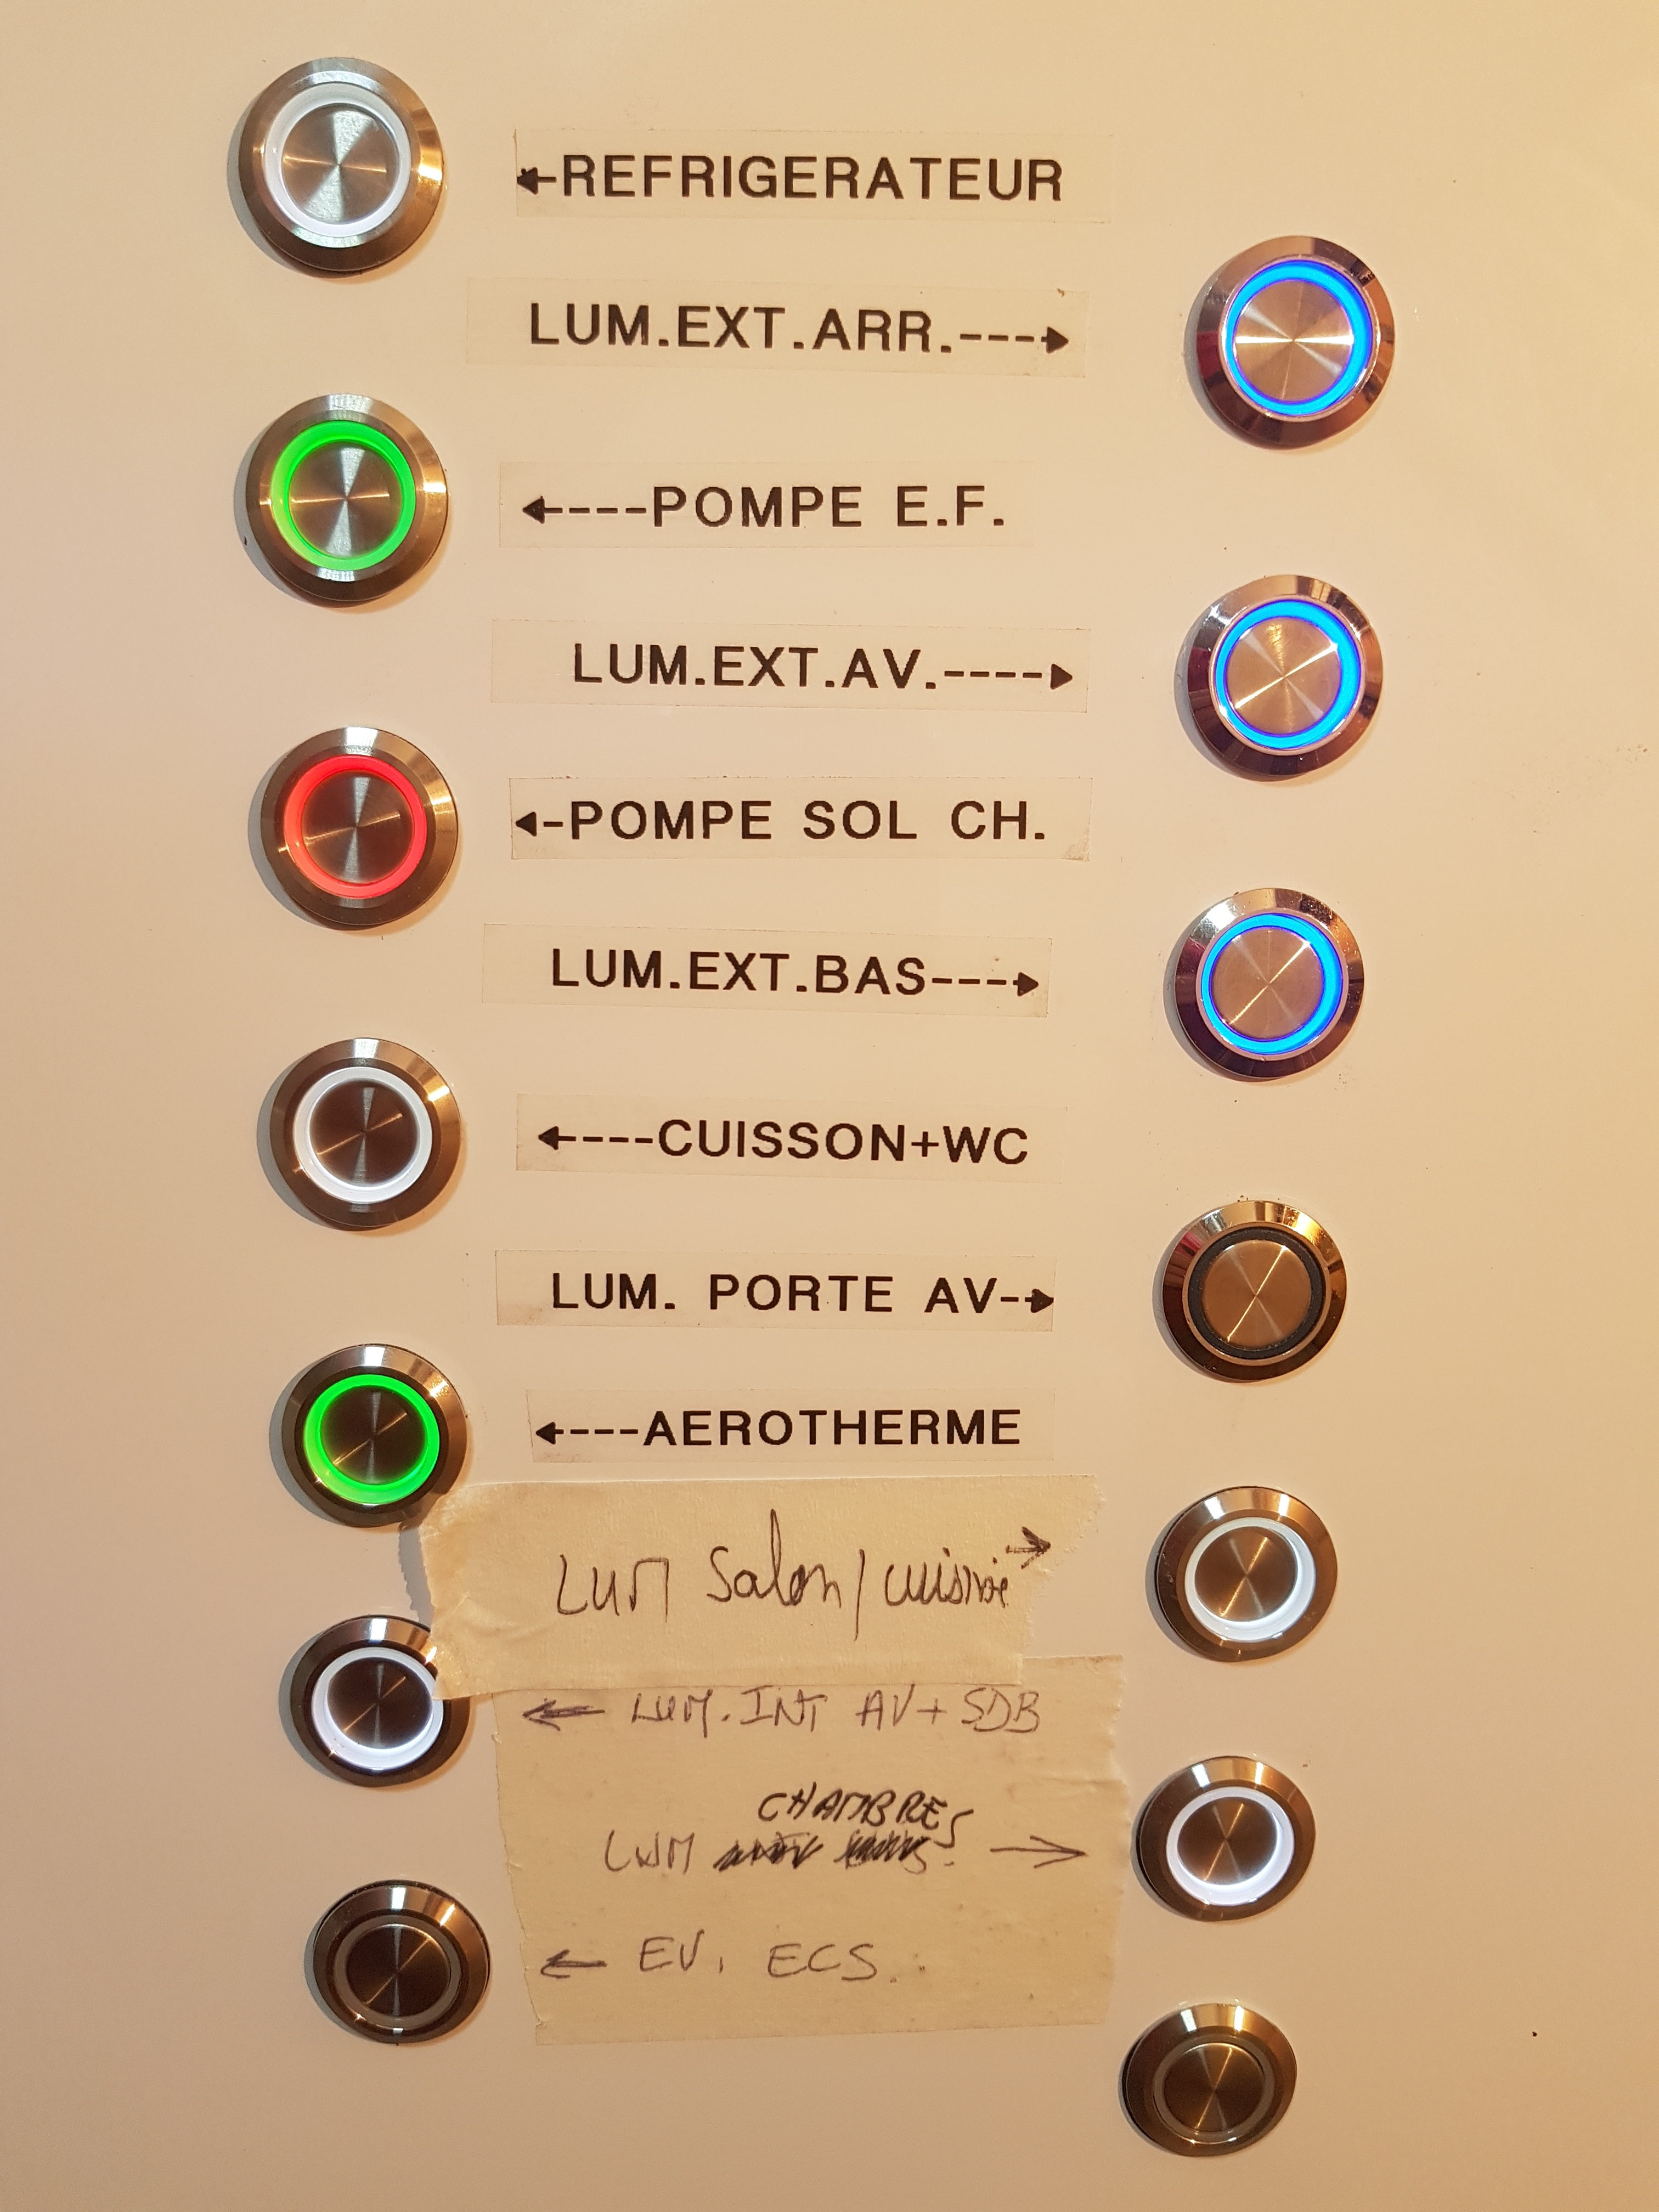 ←-REFRIGERATEUR
LUM.EXT.ARR.---→
←----POMPE E.F.
LUM.EXT.AV.----→
←-POMPE SOL CH.
LUM.EXT.BAS---→
←----CUISSON+WC
LUM. PORTE AV-→
←---AEROTHERME
LUM Salon/cuisine →
← LUM.INT AV+SDB
CHAMBRES
LUM →
← EV. ECS.